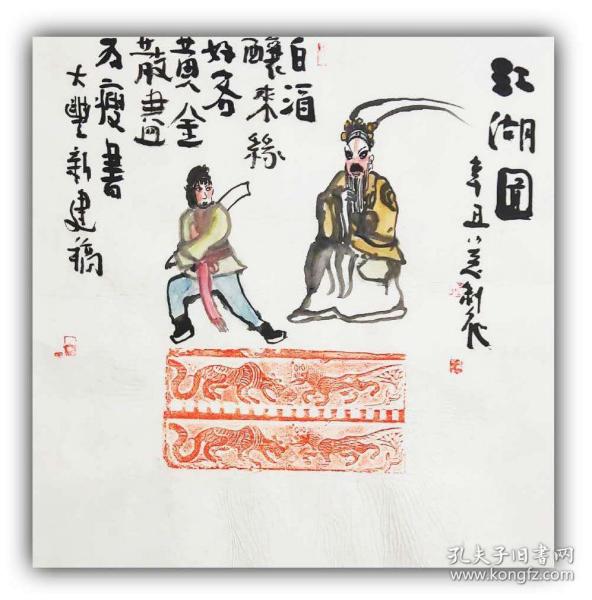 江湖圖
辛丑
白酒
釀来緣
好客
黄金
散盡
为瘦書
大豐新建稿
孔夫子旧书网
www.kongfz.com